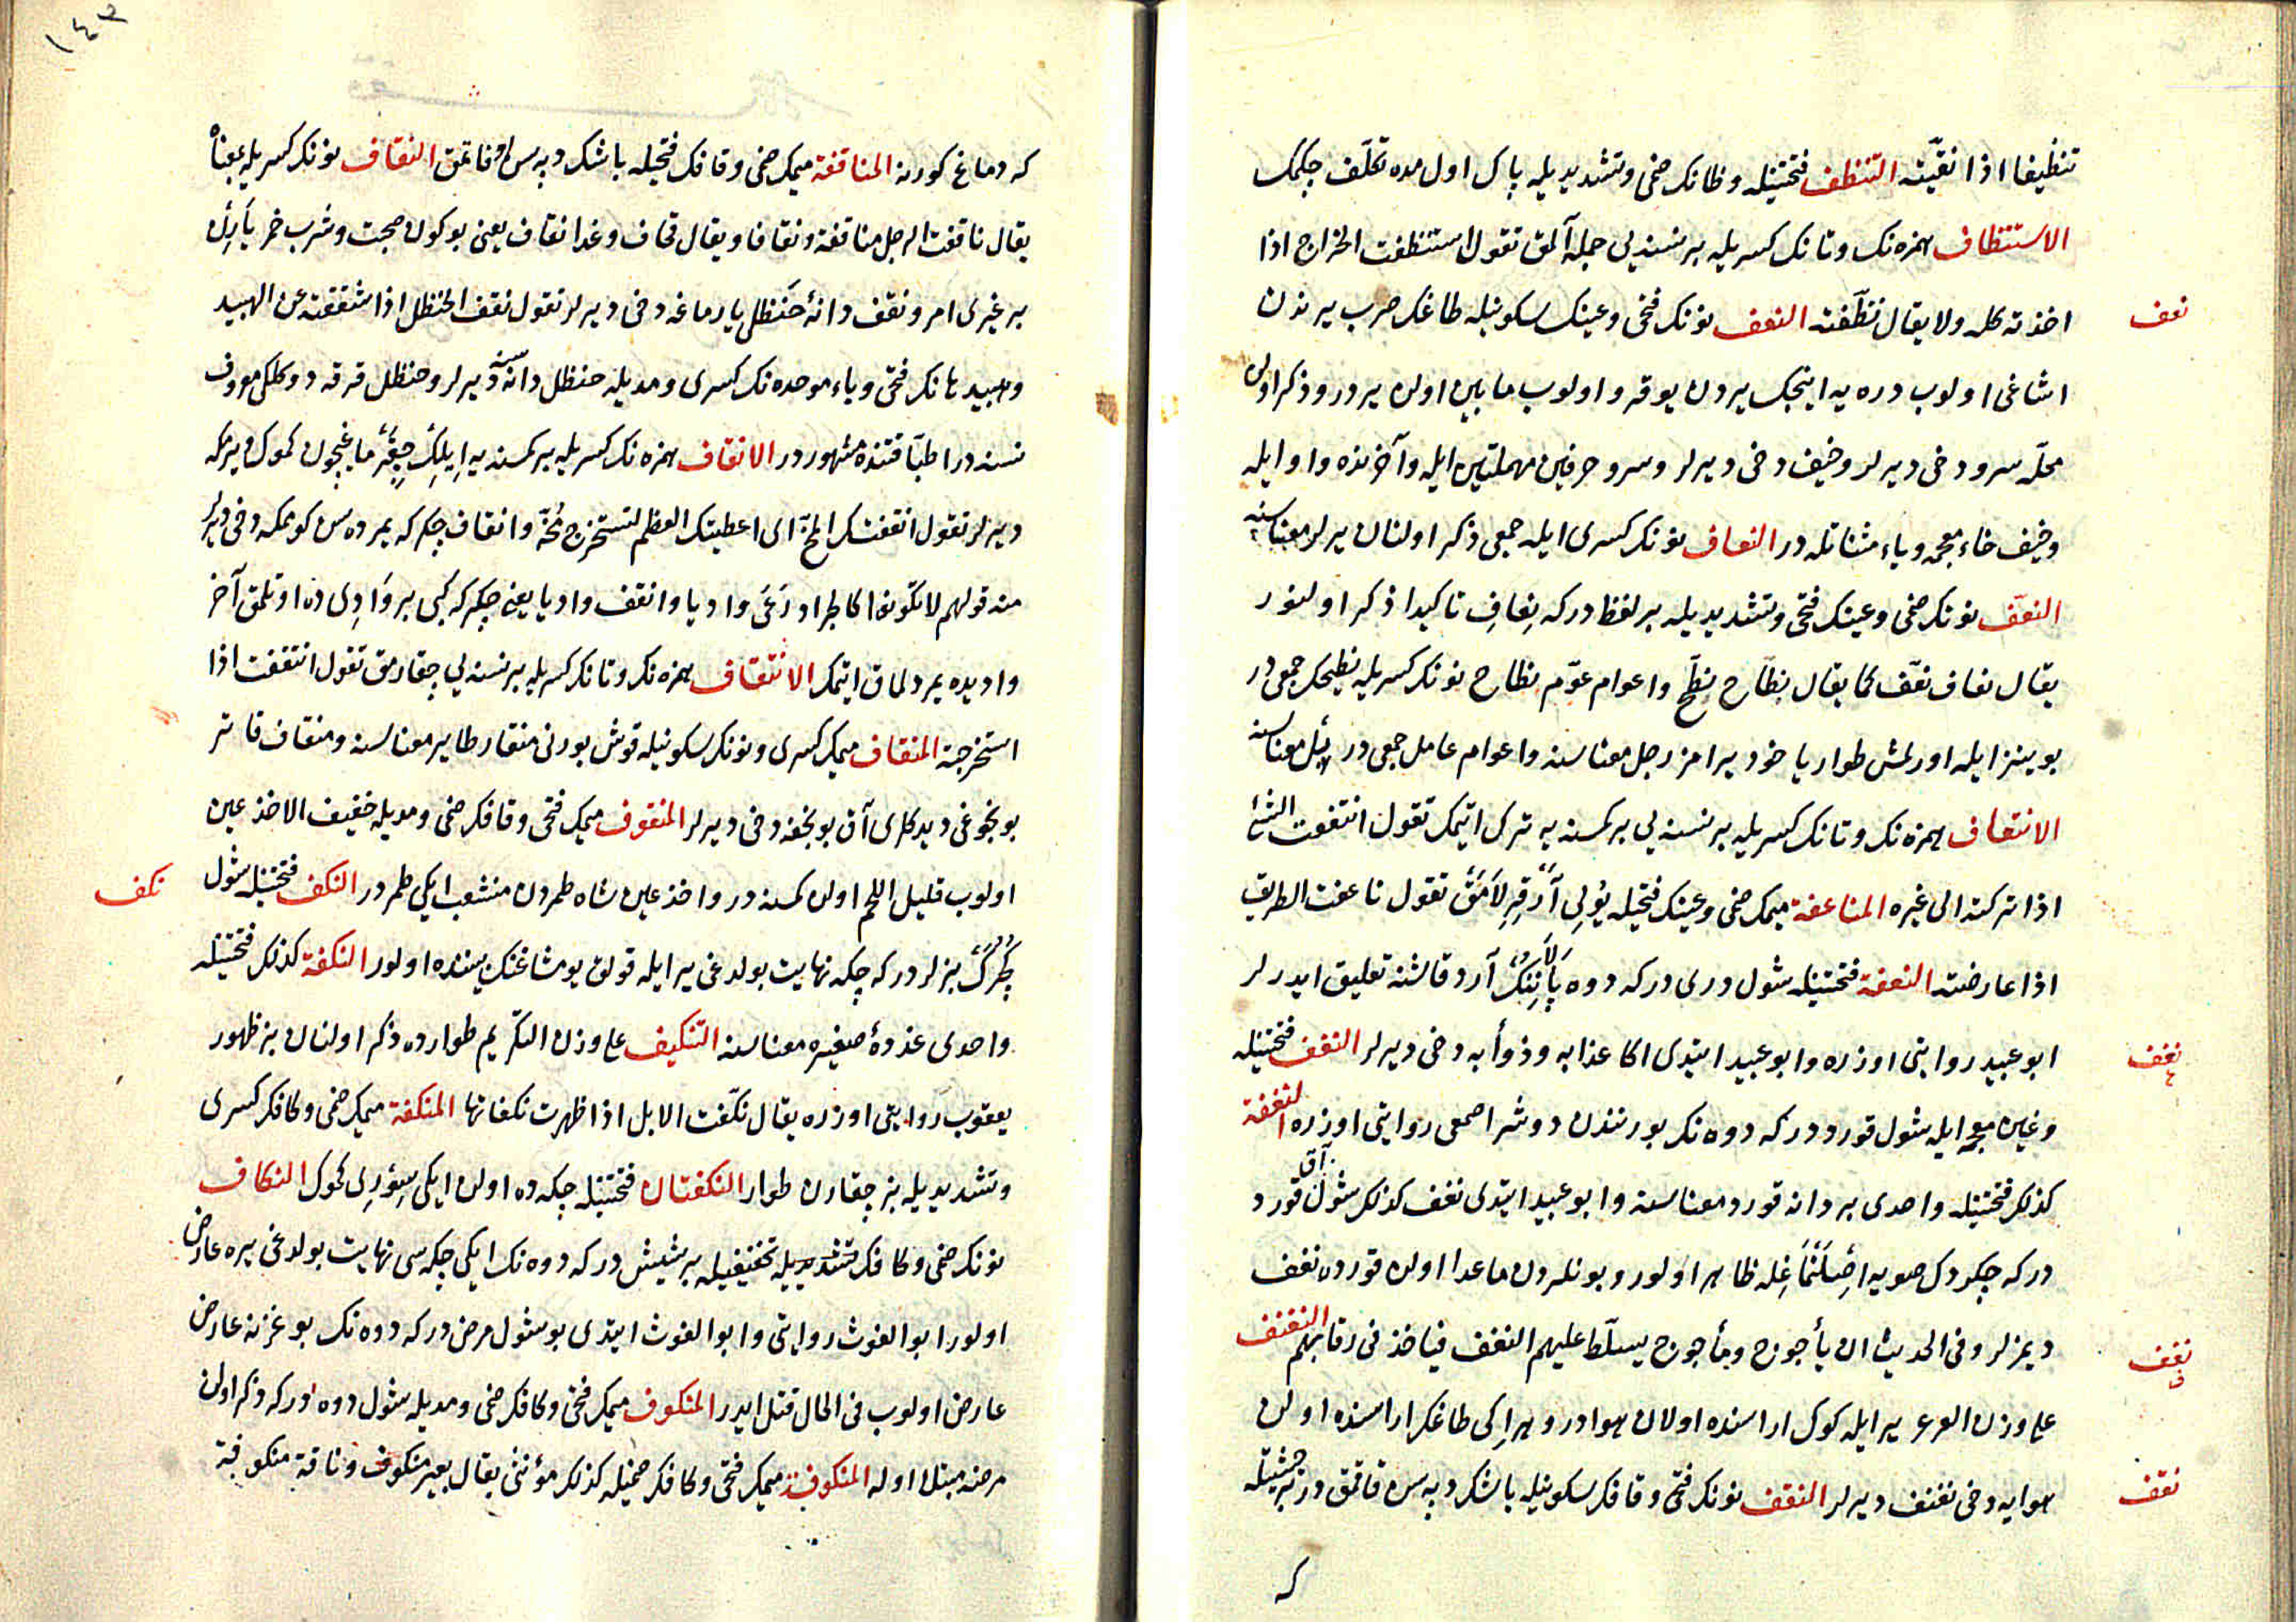 تنظيفا اذا نقّيته التنظف فتحتينله وظانك ضمى وتشديديله پاك اولمده تكلّف چكمك
الاستنظاف همزه نك وتانك كسريله بر نسنه يى جمله آلمق تقول استنظفت الخراج اذا
اخذته كله ولا يقال نظّفته النعف نونك فتحى وعينك سكونيله طاغك صرب يرندن
نعف
اشاغى اولوب دره يه اينجك يردن يوقرو اولوب مابين اولن يردر و ذكر اولن
محلّه سرو دخى ديرلر وخيف دخى ديرلر وسرو حرفين مهملتين ايله وآخرنده واو ايله
وخيف خاء معجمه وياء مثناتله در النعاف نونك كسرى ايله جمعى ذكر اولنان يرلر معناسنه
النعّف نونك ضمى وعينك فتحى وتشديديله بر لفظدركه نعاف تاكيدا ذكر اولنور
يقال نعاف نعّف كما يقال بطاح بطّح واعوام عوّم بطاح نونك كسريله بطيحك جمعى در
بوينز ايله اورلمش طوار ياخود يرامز رجل معناسنه واعوام عامل جمعى در ييل معناسنه
الانتعاف همزه نك وتانك كسريله بر نسنه يى بر كمسنه يه ترك ايتمك تقول انتعفت الشئ
اذا تركته الى غيره المناعفة ميمك ضمى وعينك فتحيله يولى آرقرلامق تقول ناعفت الطريق
اذا عارضته النعفة فتحتينله شول دريدركه دوه پالاننك آرد قاشنه تعليق ايدرلر
ابو عبيد روايتى اوزره وابو عبيد ايتدى اكا عذابه وذوأبه دخى ديرلر النغف فتحتينله
نغف
وغين معجمه ايله شول قورددركه دوه نك بورنندن دوشر اصمعى روايتى اوزره النغفة
كذلك فتحتينله واحدى بر دانه قورد معناسنه وابو عبيد ايتدى نغف كذلك شول آق قورد
دركه چكردك صويه اصلنمغله ظاهر اولور وبونلردن ماعدا اولن قورده نغف
ديمزلر وفى الحديث ان يأجوج ومأجوج يسلّط عليهم النغف فياخذ فى رقابهم النفنف
نفف
على وزن العرعر ير ايله كوك اراسنده اولان هوادر وهر ايكى طاغك اراسنده اولن
هوايه دخى نفنف ديرلر النقف نونك فتحى وقافك سكونيله باشك دپه سن قاقمقدر بر حيثيتله
نقف
كه
١٤٣
كه دماغ كورنه المناقفة ميمك ضمى وقافك فتحيله باشك دپه سن قاقمق النقاف نونك كسريله بمعناه
يقال ناقفت الرجل مناقفة ونقافا ويقال قحاف وغدا نقاف يعنى بوكون صحبت وشرب خمر يارين
بر غيرى امر ونقف دانهٔ حنظل يارماغه دخى ديرلر تقول نقف الحنظل اذا شققته عن الهبيد
وهبيد هانك فتحى وباء موحده نك كسرى ومديله حنظل دانه سنه ديرلر وحنظل قرقه دوكلكى معروف
نسنه در اطبّا قتنده مشهوردر الانقاف همزه نك كسريله بر كمسنه يه ايليك چيقرماغيچون كموك ويرمكه
ديرلر تقول انقفتك المخّ اى اعطيتك العظم لتستخرج مخّه وانقاف چكركه يمورده سن كومكه دخى ديرلر
منه قولهم لا تكونوا كالجراد رعى واديا وانقف واديا يعنى چكركه كبى بر واديده اوتلمق آخر
واديده يمردلماق ايتمك الانتقاف همزه نك وتانك كسريله بر نسنه يى چقارمق تقول انتقفت اذا
استخرجته المنقاف ميمك كسرى ونونك سكونيله قوش بورنى منقار طاير معناسنه ومنقاف قاتر
بونجوغى ديدكلرى آق بونجغه دخى ديرلر المنقوف ميمك فتحى وقافك ضمى ومديله خفيف الاخذعين
اولوب قليل اللحم اولن كمسنه در واخذعين شاه طمردن منشعب ايكى طمردر النكف فتحتينله شول
نكف
بزلردركه چكه نهايت بولدغى ير ايله قولق يومشاغنك بيننده اولور النكفة كذلك فتحتينله
واحدى غذدهٔ صغيره معناسنه التنكيف على وزن التكريم طوارده ذكر اولنان بز ظهور
يعقوب روايتى اوزره يقال نكّفت الابل اذا ظهرت نكفاتها المنكفة ميمك ضمى وكافك كسرى
وتشديديله بز چقارن طوار النكفتان فتحتينله چكه ده اولن ايكى سورى كموك النكاف
نونك ضمى وكافك تشديديله تخفيفيله بر شيش دركه دوه نك ايكى چكه سى نهايت بولدغى يره عارض
اولور ابو الغوث روايتى وابو الغوث ايتدى بو شول مرض دركه دوه نك بوغزنه عارض
عارض اولوب فى الحال قتل ايدر المنكوف ميمك فتحى وكافك ضمى ومديله شول دوه دركه ذكر اولن
مرضه مبتلا اوله المنكوفة ميمك فتحى وكافك ضميله كذلك مؤنثى يقال بعير منكوف وناقة منكوفة